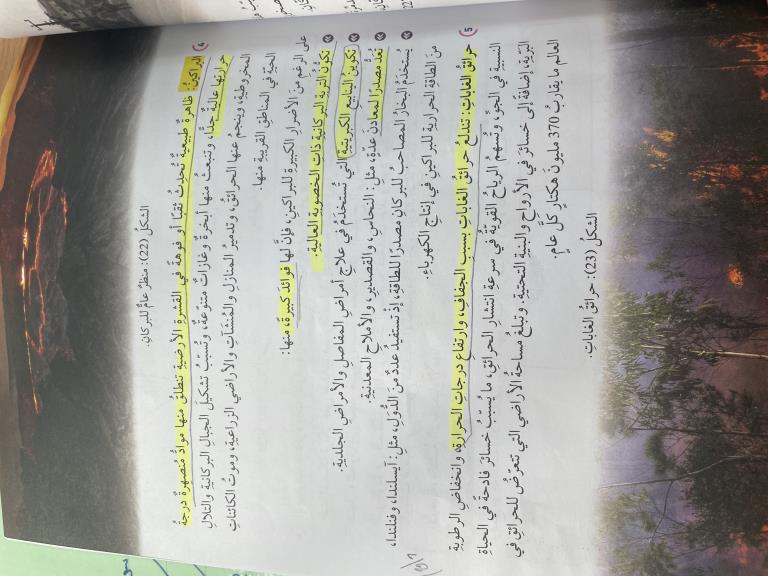 الشكلُ (22): منظرٌ عامٌّ للبركانِ.
4 البراكينُ: ظاهرةٌ طبيعيةٌ تُحدِثُ ثقبًا أو فوهةً في القشرةِ الأرضيةِ تنطلقُ منها موادُّ مُنصهِرةٌ درجةُ
حرارتِها عاليةٌ جدًّا، وتنبعثُ منها أبخرةٌ وغازاتٌ متنوّعةٌ، وتُسبِّبُ تشكيلَ الجبالِ البركانيةِ والتلالِ
المخروطيةِ، وينجمُ عنها الحرائقُ، وتدميرُ المنازلِ والمُنشَآتِ والأراضي الزراعيةِ، وموتُ الكائناتِ
الحيّةِ في المناطقِ القريبةِ منها.
على الرغمِ منَ الأضرارِ الكبيرةِ للبراكينِ، فإنَّ لها فوائدَ كبيرةً، منها:
تكوُّنُ التربةِ البركانيةِ ذاتِ الخصوبةِ العاليةِ.
تكوينُ الينابيعِ الكبريتيةِ التي تُستخدَمُ في علاجِ أمراضِ المفاصلِ والأمراضِ الجلديةِ.
تُعَدُّ مصدرَ المعادنِ عدّةٍ، مثلِ: النحاسِ، والقصديرِ، والأملاحِ المعدنيةِ.
يُستخدَمُ البخارُ المصاحبُ للبركانِ مصدرًا للطاقةِ، إذْ تستفيدُ عددٌ منَ الدُّوَلِ، مثلِ: آيسلندا، وفنلندا،
منَ الطاقةِ الحراريةِ للبراكينِ في إنتاجِ الكهرباءِ.
5 حرائقُ الغاباتِ: تندلعُ حرائقُ الغاباتِ بسببِ الجفافِ، وارتفاعِ درجاتِ الحرارةِ، وانخفاضِ الرطوبةِ
النسبيةِ في الجوِّ، وتُسهِمُ الرياحُ القويةُ في سرعةِ انتشارِ الحرائقِ، ما يُسبِّبُ خسائرَ فادحةً في الحياةِ
البرّيةِ، إضافةً إلى خسائرَ في الأرواحِ والبنيةِ التحتيةِ. وتبلغُ مساحةُ الأراضي التي تتعرّضُ للحرائقِ في
العالمِ ما يقاربُ 370 مليونَ هكتارٍ كلَّ عامٍ.
الشكلُ (23): حرائقُ الغاباتِ.